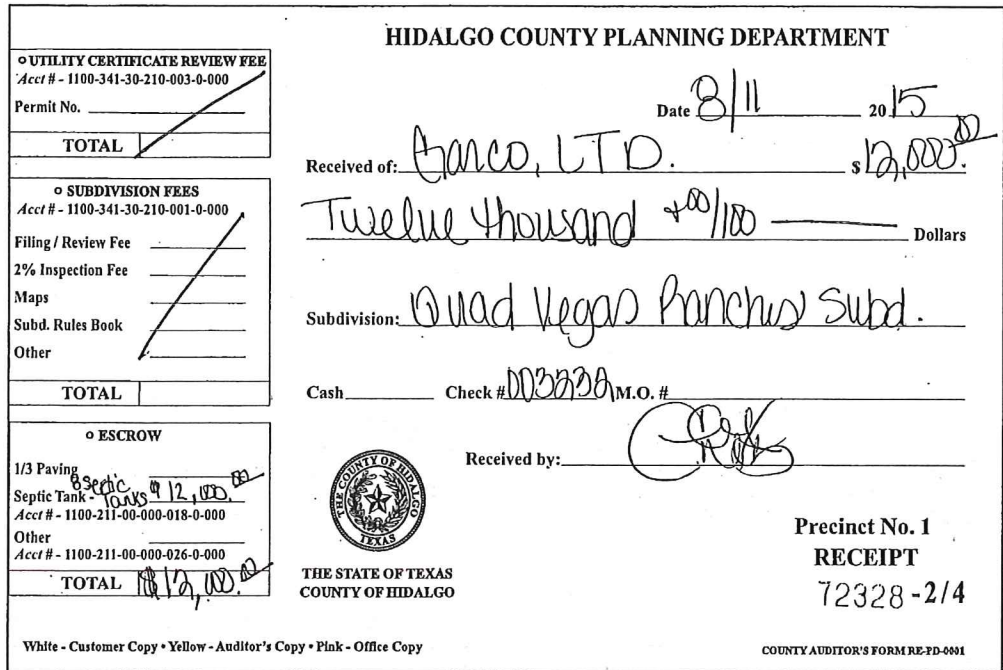 HIDALGO COUNTY PLANNING DEPARTMENT
o UTILITY CERTIFICATE REVIEW FEE
Acct # - 1100-341-30-210-003-0-000
Permit No.
TOTAL
o SUBDIVISION FEES
Acct # - 1100-341-30-210-001-0-000
Filing / Review Fee
2% Inspection Fee
Maps
Subd. Rules Book
Other
TOTAL
o ESCROW
1/3 Paving
8 Septic
Septic Tank - Tanks $12,000.00
Acct # - 1100-211-00-000-018-0-000
Other
Acct # - 1100-211-00-000-026-0-000
TOTAL $12,000.00
Date 8/11 2015
Received of: Garco, LTD. $12,000.00
Twelve thousand +00/100 Dollars
Subdivision: Quad Vegas Ranches Subd.
Cash Check # 003232 M.O. #
Received by:
THE COUNTY OF HIDALGO
TEXAS
THE STATE OF TEXAS
COUNTY OF HIDALGO
Precinct No. 1
RECEIPT
72328-2/4
White - Customer Copy • Yellow - Auditor's Copy • Pink - Office Copy
COUNTY AUDITOR'S FORM RE-PD-0001